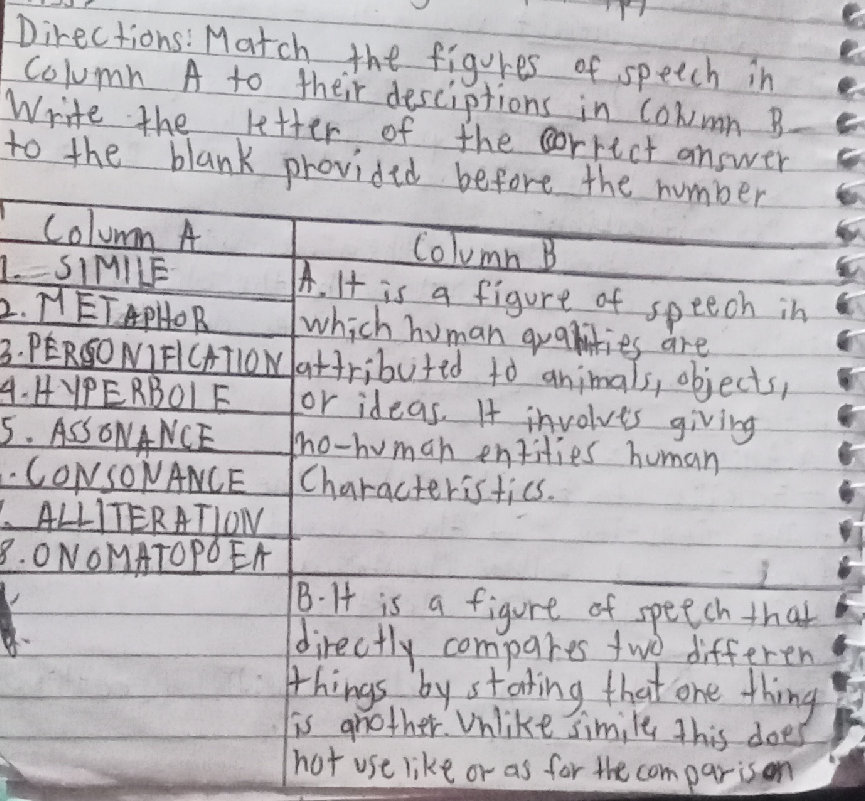 Directions: Match the figures of speech in
Column A to their desciptions in Column B
Write the letter of the correct answer
to the blank provided before the number
Column A
1. SIMILE
2. METAPHOR
3. PERSONIFICATION
4. HYPERBOLE
5. ASSONANCE
. CONSONANCE
. ALLITERATION
8. ONOMATOPOEA
Column B
A. It is a figure of speech in
which human qualities are
attributed to animals, objects,
or ideas. It involves giving
no-human entities human
Characteristics.
B. It is a figure of speech that
directly compares two differen
things by stating that one thing
is another. Unlike simile, this does
not use like or as for the comparison